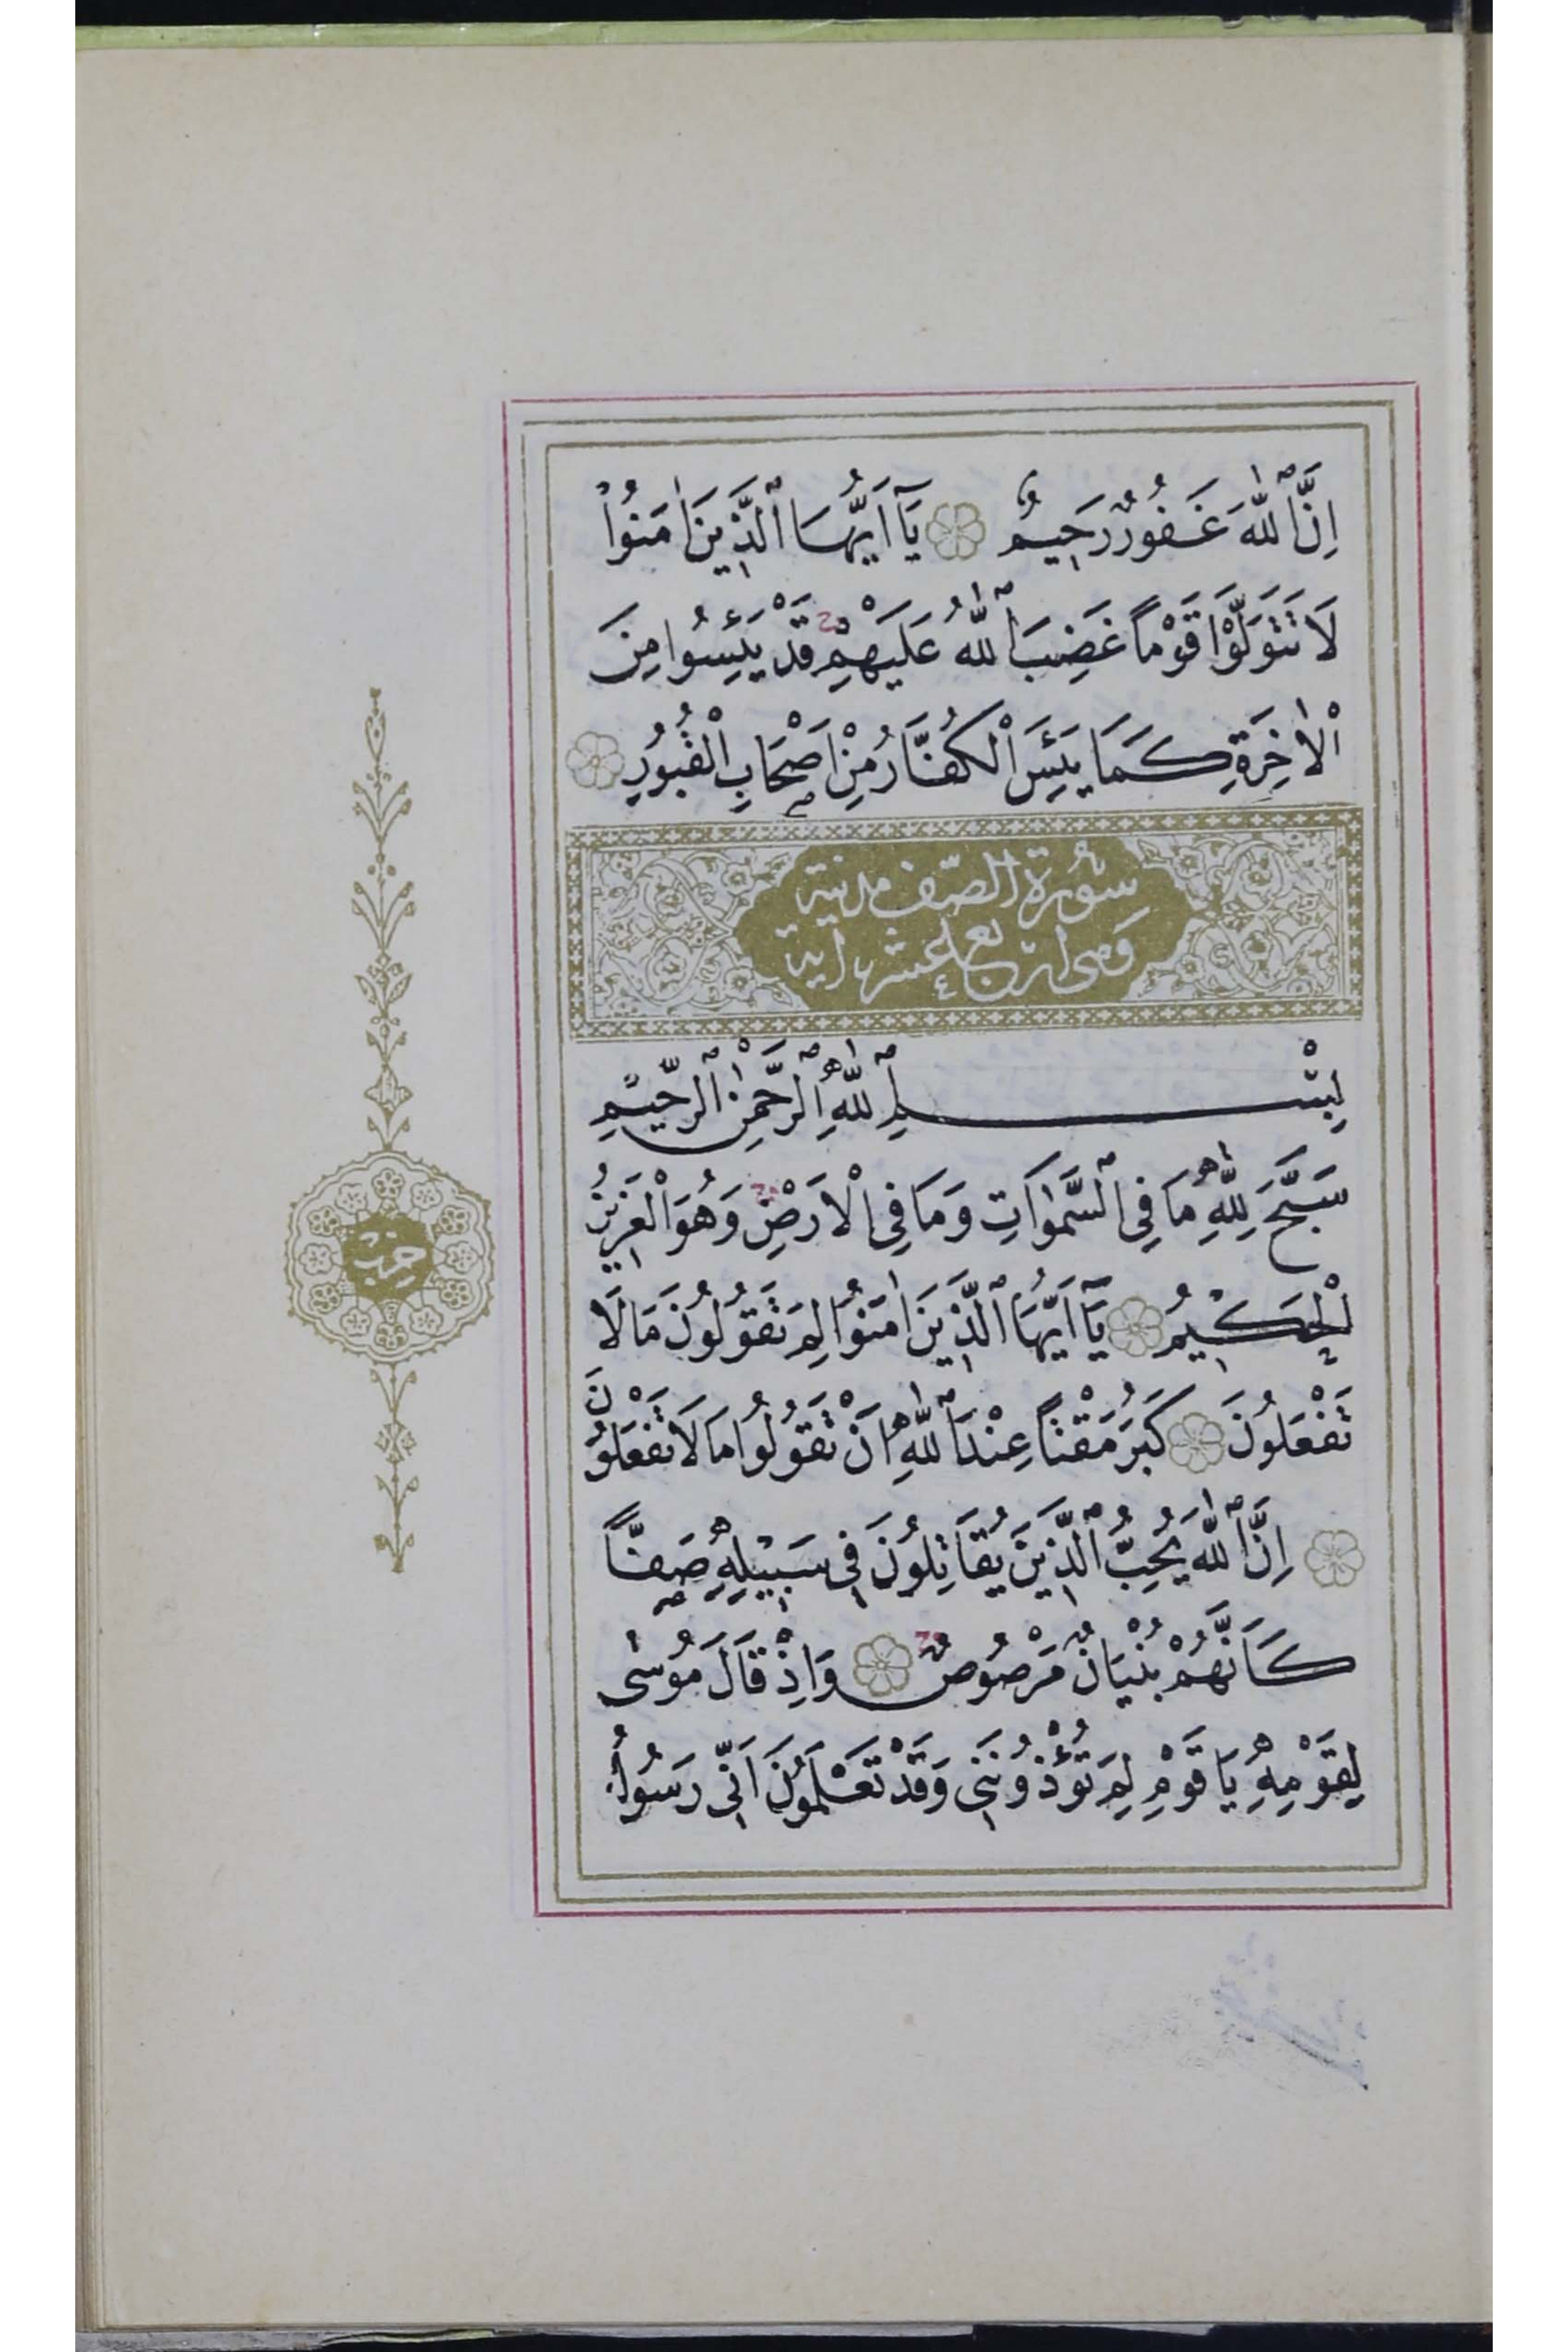 اِنَّ ٱللّٰهَ غَفُورٌ رَحِيمٌ يَآ اَيُّهَا ٱلَّذِينَ اٰمَنُوْا
لَا تَتَوَلَّوْا قَوْمًا غَضِبَ ٱللّٰهُ عَلَيْهِمْ قَدْ يَئِسُوا مِنَ
الْاٰخِرَةِ كَمَا يَئِسَ الْكُفَّارُ مِنْ اَصْحَابِ الْقُبُورِ
سُورَةُ الصّف مدنية
وَهى اربع عشر اية
بِسْمِ ٱللّٰهِ ٱلرَّحْمٰنِ ٱلرَّحِيمِ
سَبَّحَ لِلّٰهِ مَا فِى ٱلسَّمٰوَاتِ وَمَا فِى الْاَرْضِ وَهُوَ الْعَزِيزُ
الْحَكِيْمُ يَآ اَيُّهَا ٱلَّذِينَ اٰمَنُوا لِمَ تَقُولُونَ مَا لَا
تَفْعَلُونَ كَبُرَ مَقْتًا عِنْدَ ٱللّٰهِ اَنْ تَقُولُوا مَا لَا تَفْعَلُونَ
اِنَّ ٱللّٰهَ يُحِبُّ ٱلَّذِينَ يُقَاتِلُونَ فِى سَبِيْلِهِ صَفًّا
كَاَنَّهُمْ بُنْيَانٌ مَرْصُوصٌ وَاِذْ قَالَ مُوسٰى
لِقَوْمِهِ يَا قَوْمِ لِمَ تُؤْذُونَنِى وَقَدْ تَعْلَمُونَ اَنِّى رَسُولُ
حزب